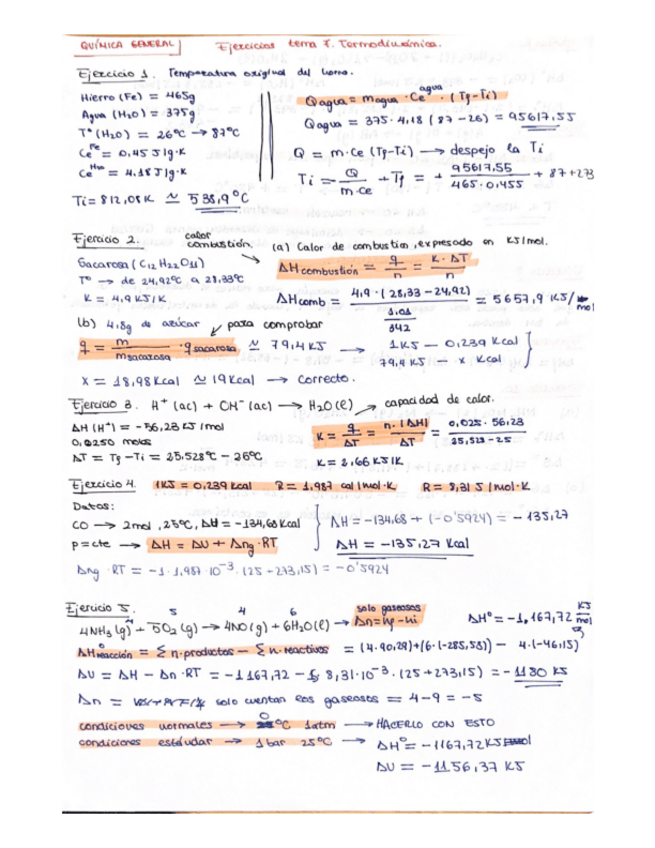 QUÍMICA GENERAL Ejercicios tema 7. Termodinámica.
Ejercicio 1. Temperatura original del horno.
Hierro (Fe) = 465g
Agua (H2O) = 375g
Tª (H2O) = 26ºC → 87ºC
Ce Fe = 0,45 J/g·K
Ce H2O = 4,18 J/g·K
Ti = 812,05K ≃ 538,9ºC
Qagua = magua · Ce agua · (Tf - Ti)
Qagua = 375 · 4,18 (87 - 26) = 95617,55
Q = m·Ce (Tf - Ti) → despejo la Ti
Ti = - Q / m·ce + Tf = + 95617,55 / 465·0,455 + 87+273
Ejercicio 2. calor combustión.
Sacarosa (C12H22O11)
Tª → de 24,92ºC a 28,33ºC
K = 4,9 KJ/K
(a) Calor de combustion, expresado en KJ/mol.
ΔH combustión = q / n = K · ΔT / n
ΔHcomb = 4,9 · (28,33 - 24,92) / 1,01 / 342 = 5657,9 KJ/mol
(b) 4,8g de azúcar para comprobar
q = m / msacarosa · qsacarosa ≃ 79,4 KJ → 1KJ - 0,239 Kcal
79,4 KJ - x Kcal
X = 18,98Kcal ≃ 19Kcal → correcto.
Ejercicio 3. H+ (ac) + OH- (ac) → H2O(l) capacidad de calor.
ΔH (H+) = -56,23 KJ/mol
0,0250 moles
ΔT = Tf - Ti = 25,528ºC - 25ºC
K = q / ΔT = n·|ΔH| / ΔT = 0,025 · 56,23 / 25,528 - 25
K = 2,66 KJ/K
Ejercicio 4. 1KJ = 0,239 kcal R = 1,987 cal/mol·K R = 8,31 J/mol·K
Datos:
CO → 2mol, 25ºC, ΔU = -134,68 Kcal
p = cte → ΔH = ΔU + Δng · RT
ΔH = -134,68 + (-0'5924) = -135,27
ΔH = -135,27 Kcal
Δng · RT = -1 · 1,987 · 10-3 · (25 + 273,15) = -0'5924
Ejercicio 5. 5 4 6 solo gaseosos
4NH3(g) + 5O2(g) → 4NO(g) + 6H2O(l) → Δn = nf - ni ΔHº = -1,167,72 KJ/mol
ΔHº reacción = Σ n·productos - Σ n·reactivos = (4·90,29)+(6·(-285,53)) - 4·(-46,15)
ΔU = ΔH - Δn·RT = -1167,72 - 5 8,31·10-3 · (25+273,15) = -1180 KJ
Δn = solo cuentan los gaseosos = 4 - 9 = -5
condiciones normales → 0ºC 1atm → HACERLO CON ESTO
condiciones estándar → 1bar 25ºC → ΔHº = -1167,72 KJ
ΔU = -1156,37 KJ